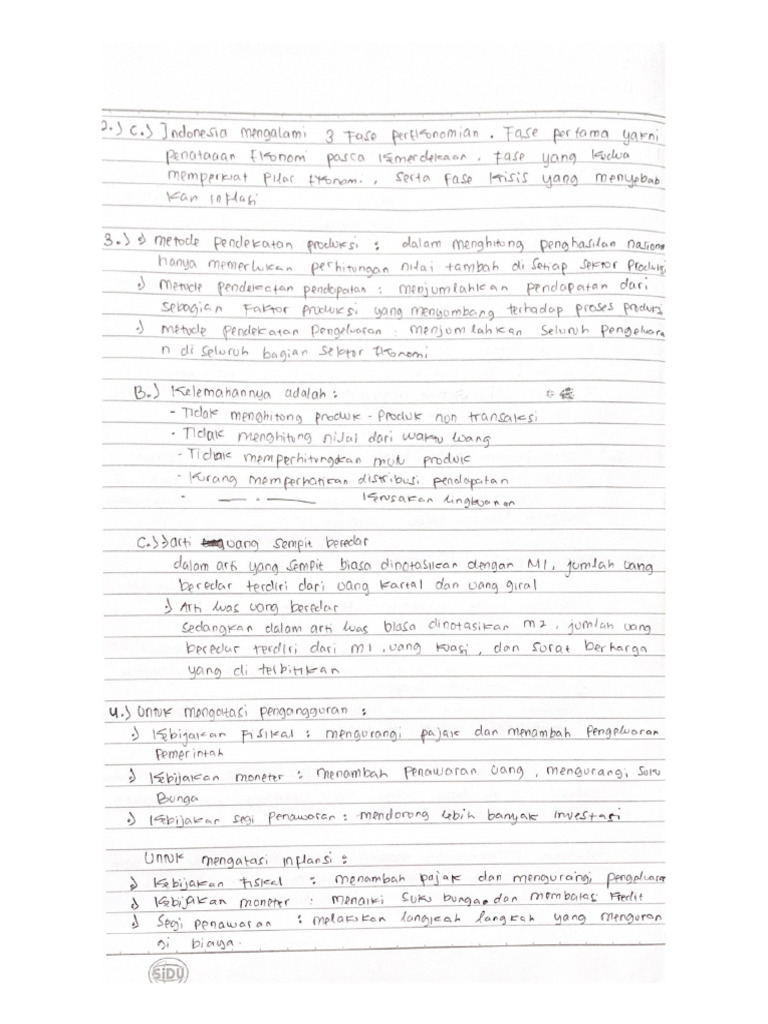 2.) C.) Indonesia mengalami 3 Fase perEkonomian. Fase pertama yakni
penataan Ekonomi pasca kemerdekaan. Fase yang kedua
memperkuat pilar Ekonomi, serta Fase krisis yang menyebab
kan inflasi
3.) •) metode pendekatan produksi : dalam menghitung penghasilan nasional
hanya memerlukan perhitungan nilai tambah di setiap sektor produksi
•) metode pendekatan pendapatan : menjumlahkan pendapatan dari
sebagian Faktor produksi yang menyumbang terhadap proses produksi
•) metode pendekatan pengeluaran : menjumlahkan seluruh pengeluara
n di seluruh bagian sektor Ekonomi
B.) Kelemahannya adalah :
- Tidak menghitong produk - produk non transaksi
- Tidak menghitung nilai dari waktu luang
- Tidak memperhitungkan mutu produk
- Kurang memperhatikan distribusi pendapatan
- — . — kerusakan lingkungan
C.) •) arti uang sempit beredar
dalam arti yang sempit biasa dinotasikan dengan M1, jumlah uang
beredar terdiri dari uang kartal dan uang giral
•) Arti luas uang beredar
sedangkan dalam arti luas biasa dinotasikan m2, jumlah uang
beredar terdiri dari m1, uang kuasi, dan surat berharga
yang di terbitkan
4.) Untuk mengatasi pengangguran :
•) Kebijakan Fisikal : mengurangi pajak dan menambah pengeluaran
pemerintah
•) Kebijakan moneter : menambah penawaran uang, mengurangi suku
Bunga
•) Kebijakan segi penawaran : mendorong lebih banyak investasi
Untuk mengatasi inflansi :
•) Kebijakan Fisikal : menambah pajak dan mengurangi pengeluara
•) Kebijakan moneter : menaiki suku bunga dan membatas kredit
•) Segi penawaran : melakukan langkah langkah yang menguran
gi biaya.
SiDU